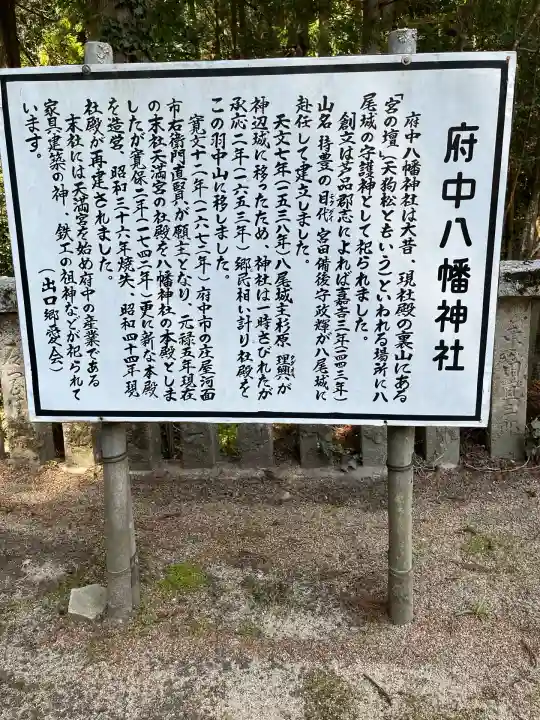 府中八幡神社
府中八幡神社は大昔、現社殿の裏山にある
「宮の壇」(天狗松ともいう)といわれる場所に八
尾城の守護神として祀られました。
創立は芦品郡志によれば嘉吉三年(一四四三年)
山名 持豊の目代 宮田備後守政輝が八尾城に
赴任して建立しました。
天文七年(一五三八年)八尾城主杉原 理興が
神辺城に移ったため、神社は一時さびれたが
承応二年(一六五三年)郷民相い計り社殿を
この羽中山に移しました。
寛文十一年(一六七一年)府中市の庄屋河面
市右衛門直賢が願主となり、元禄五年現在
の末社天満宮の社殿を八幡神社の本殿としま
したが寛保二年(一七四二年)更に新な本殿
を造営、昭和三十六年焼失、昭和四十四年現
社殿が再建されました。
末社には天満宮を始め府中の産業である
家具建築の神、鉄工の祖神などが祀られて
います。
(出口郷愛会)